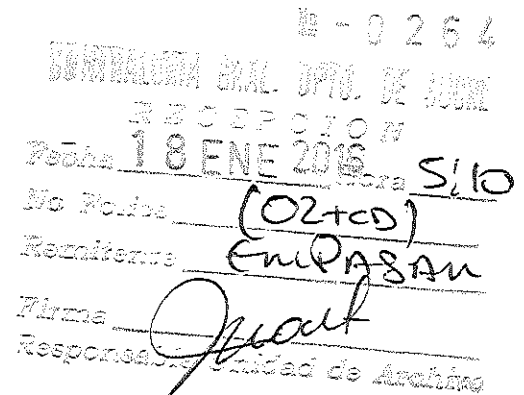 № - 0 2 6 4
CONTRALORIA GRAL. DPTO. DE SUCRE
RECEPCION
Fecha 18 ENE 2016 Hora 5:10
No Folios (02+CD)
Remitente EMPASAM
Firma
Responsable Unidad de Archivo